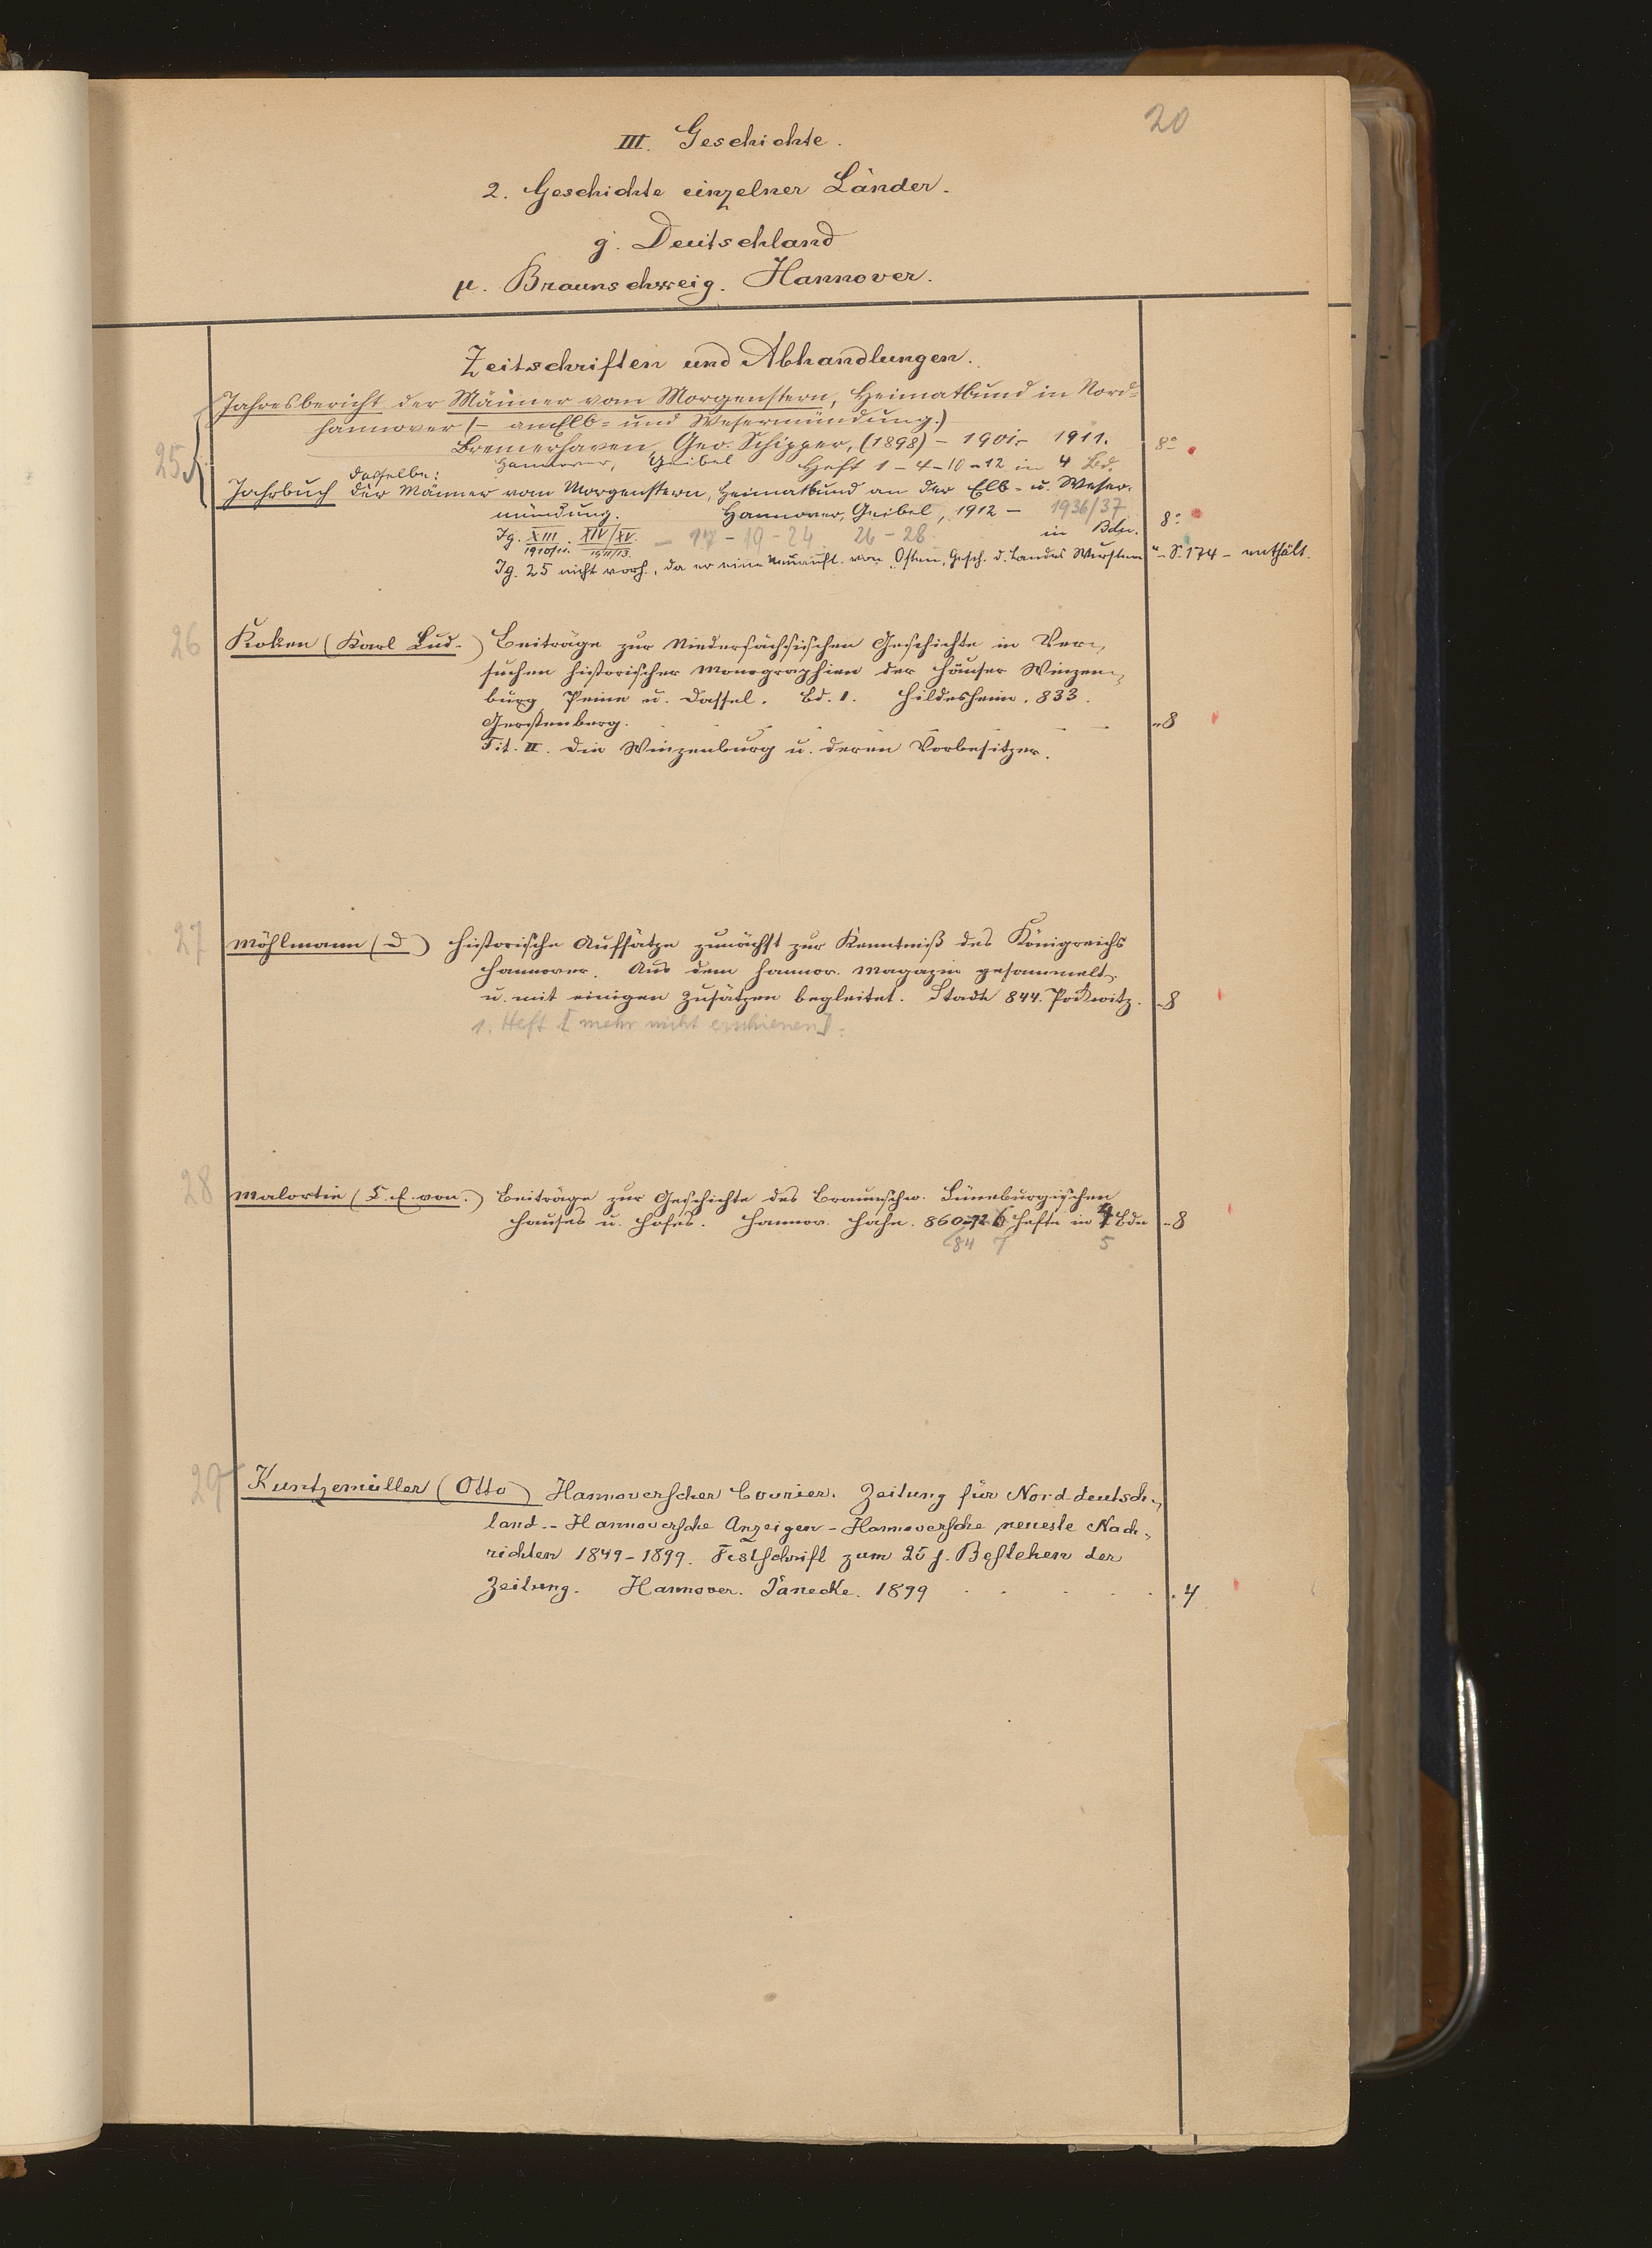 20
III. Geschichte.
2. Geschichte einzelner Länder.
g. Deutschland
µ. Braunschweig. Hannover.
Zeitschriften und Abhandlungen.
25
Jahresbericht der Männer vom Morgenstern, Heimatbund in Nord=
hannover (– an Elb= und Wesermündung.)
Bremerhaven, Geo. Schipper, (1898) – 1901– 1911. 8°
Hannover, Geibel Heft 1–4–10–12 in 4 Bd.
dasselbe:
Jahrbuch der Männer vom Morgenstern, Heimatbund an der Elb- u. Weser-
mündung. Hannover, Geibel, 1912 – 1936/37
Jg. XIII 1910/11. XIV/XV. 1911/13. – 17 – 19 – 24. 26 – 28. in Bdn. 8°
Jg. 25 nicht vorh., da er eine Neuaufl. von „Osten, Gesch. d. Landes Wursten" – S. 174 – enthält.
26 Koken (Karl Lud.) Beiträge zur Niedersächsischen Geschichte in Ver-
suchen historischer Monographien der Häuser Winzen-
burg Peine u. Dassel. Bd. 1. Hildesheim. 833.
Gerstenberg. – 8
Tit. II. Die Winzenburg u. deren Vorbesitzer.
27 Möhlmann (D) Historische Aufsätze zunächst zur Kenntniß des Königreichs
Hannover. Aus dem Hannov. Magazin gesammelt
u. mit einigen Zusätzen begleitet. Stade 844. Pockwitz. – 8
1. Heft [mehr nicht erschienen].
28 Malortie (C. E. von.) Beiträge zur Geschichte des Braunschw. Lüneburgischen
Hauses u. Hofes. Hannov. Hahn. 860–72 6 Hefte in 4 Bdn – 8
84 7 5
29 Kuntzemüller (Otto) Hannoverscher Courier. Zeitung für Norddeutsch-
land. – Hannoversche Anzeigen – Hannoversche neueste Nach-
richten 1849–1899. Festschrift zum 25 j. Bestehen der
Zeitung. Hannover. Jänecke. 1899 . . . . . 4